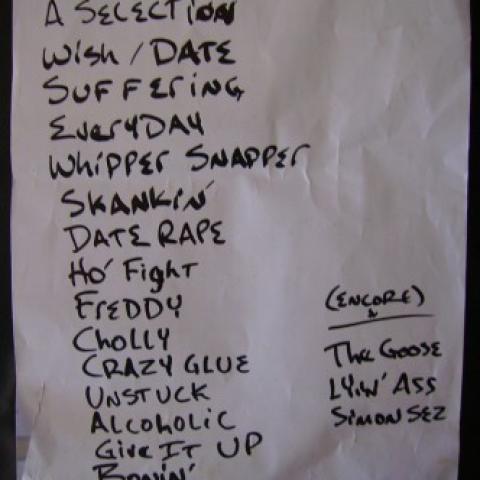 A SELECTION
WISH / DATE
SUFFERING
EVERYDAY
WHIPPER SNAPPER
SKANKIN'
DATE RAPE
HO' FIGHT
FREDDY
CHOLLY
CRAZY GLUE
UNSTUCK
ALCOHOLIC
GIVE IT UP
BONIN'
(ENCORE)
THE GOOSE
LYIN' ASS
SIMON SEZ